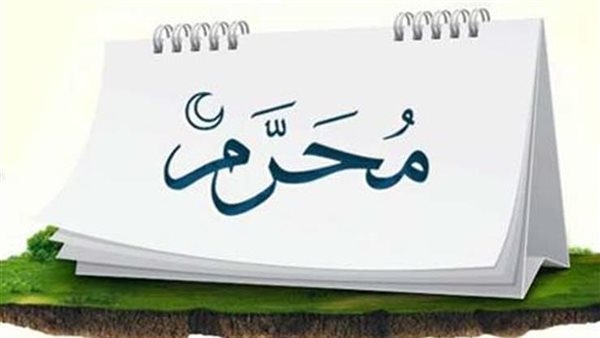 مُحَرَّم